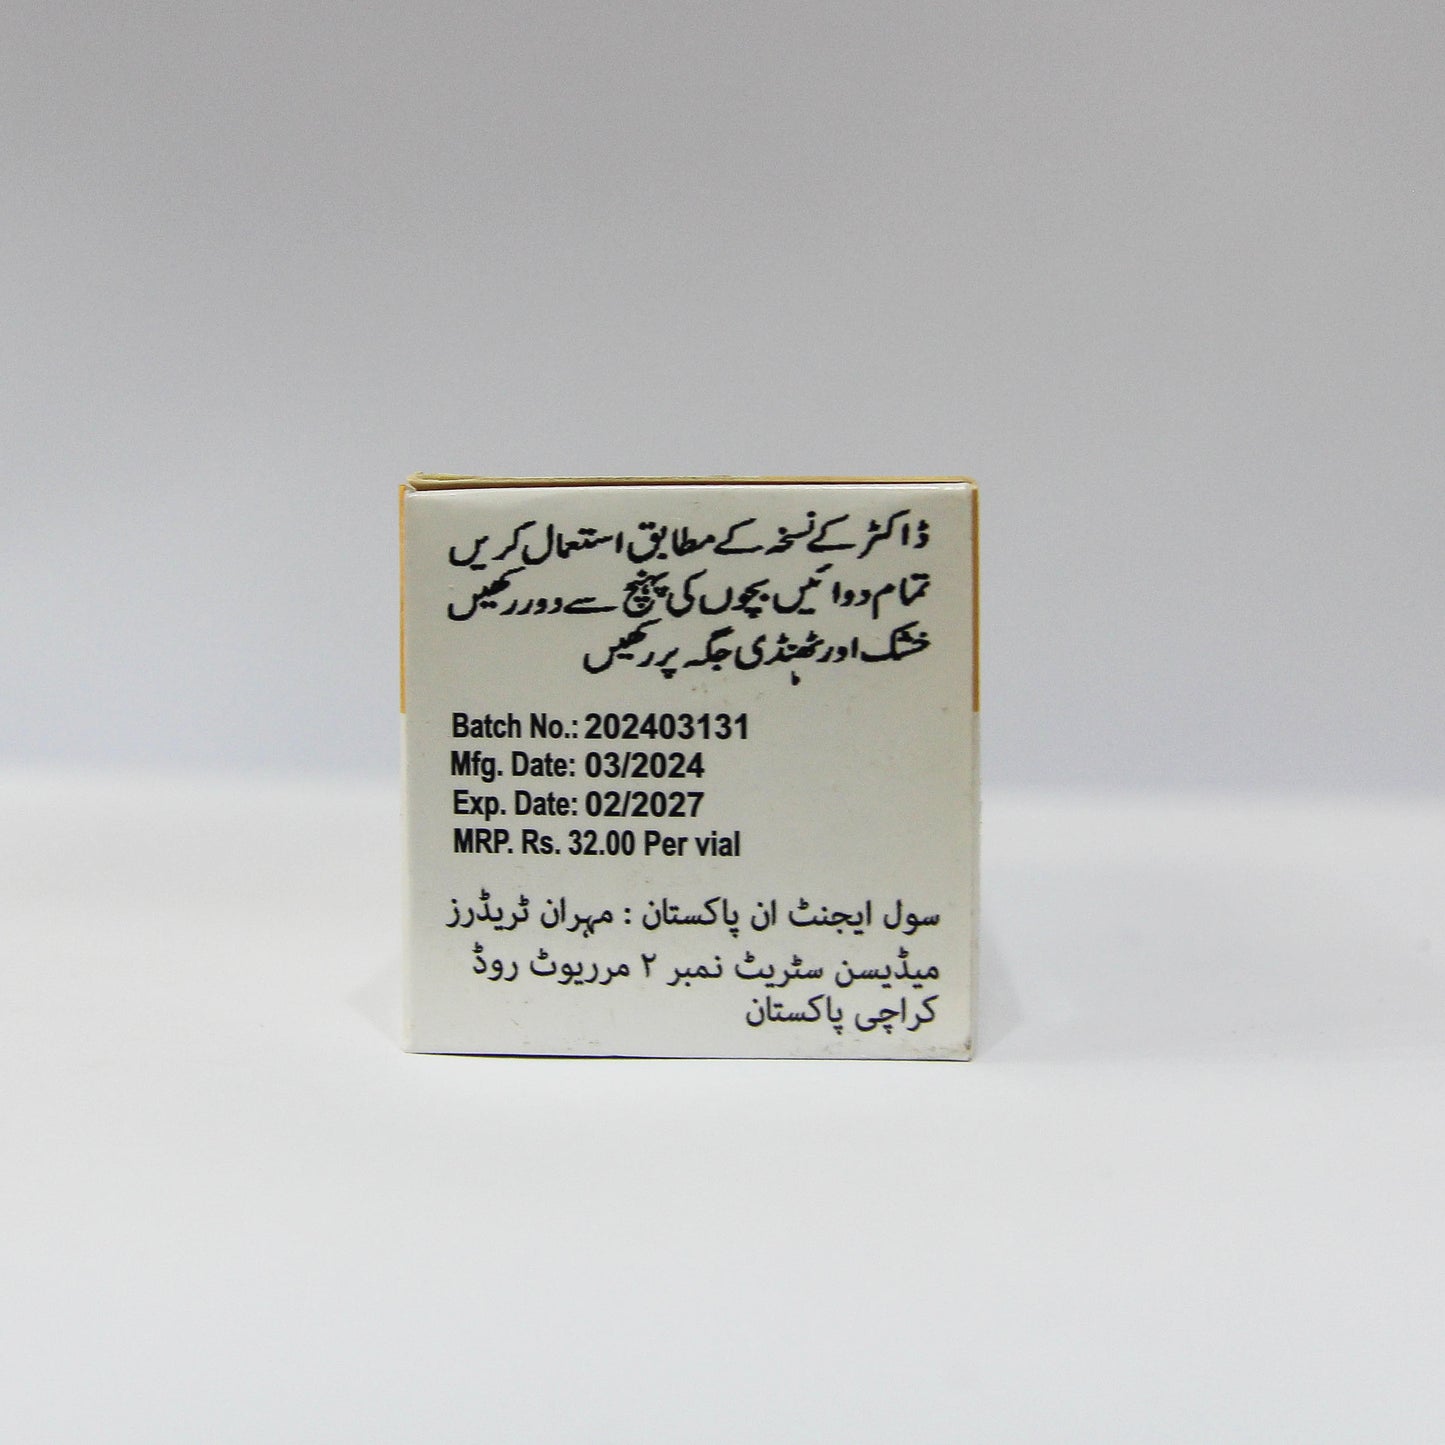 ڈاکٹر کے نسخہ کے مطابق استعمال کریں
تمام دوائیں بچوں کی پہنچ سے دور رکھیں
خشک اور ٹھنڈی جگہ پر رکھیں
Batch No.: 202403131
Mfg. Date: 03/2024
Exp. Date: 02/2027
MRP. Rs. 32.00 Per vial
سول ایجنٹ ان پاکستان : مہران ٹریڈرز
میڈیسن سٹریٹ نمبر ۲ مرریوٹ روڈ
کراچی پاکستان